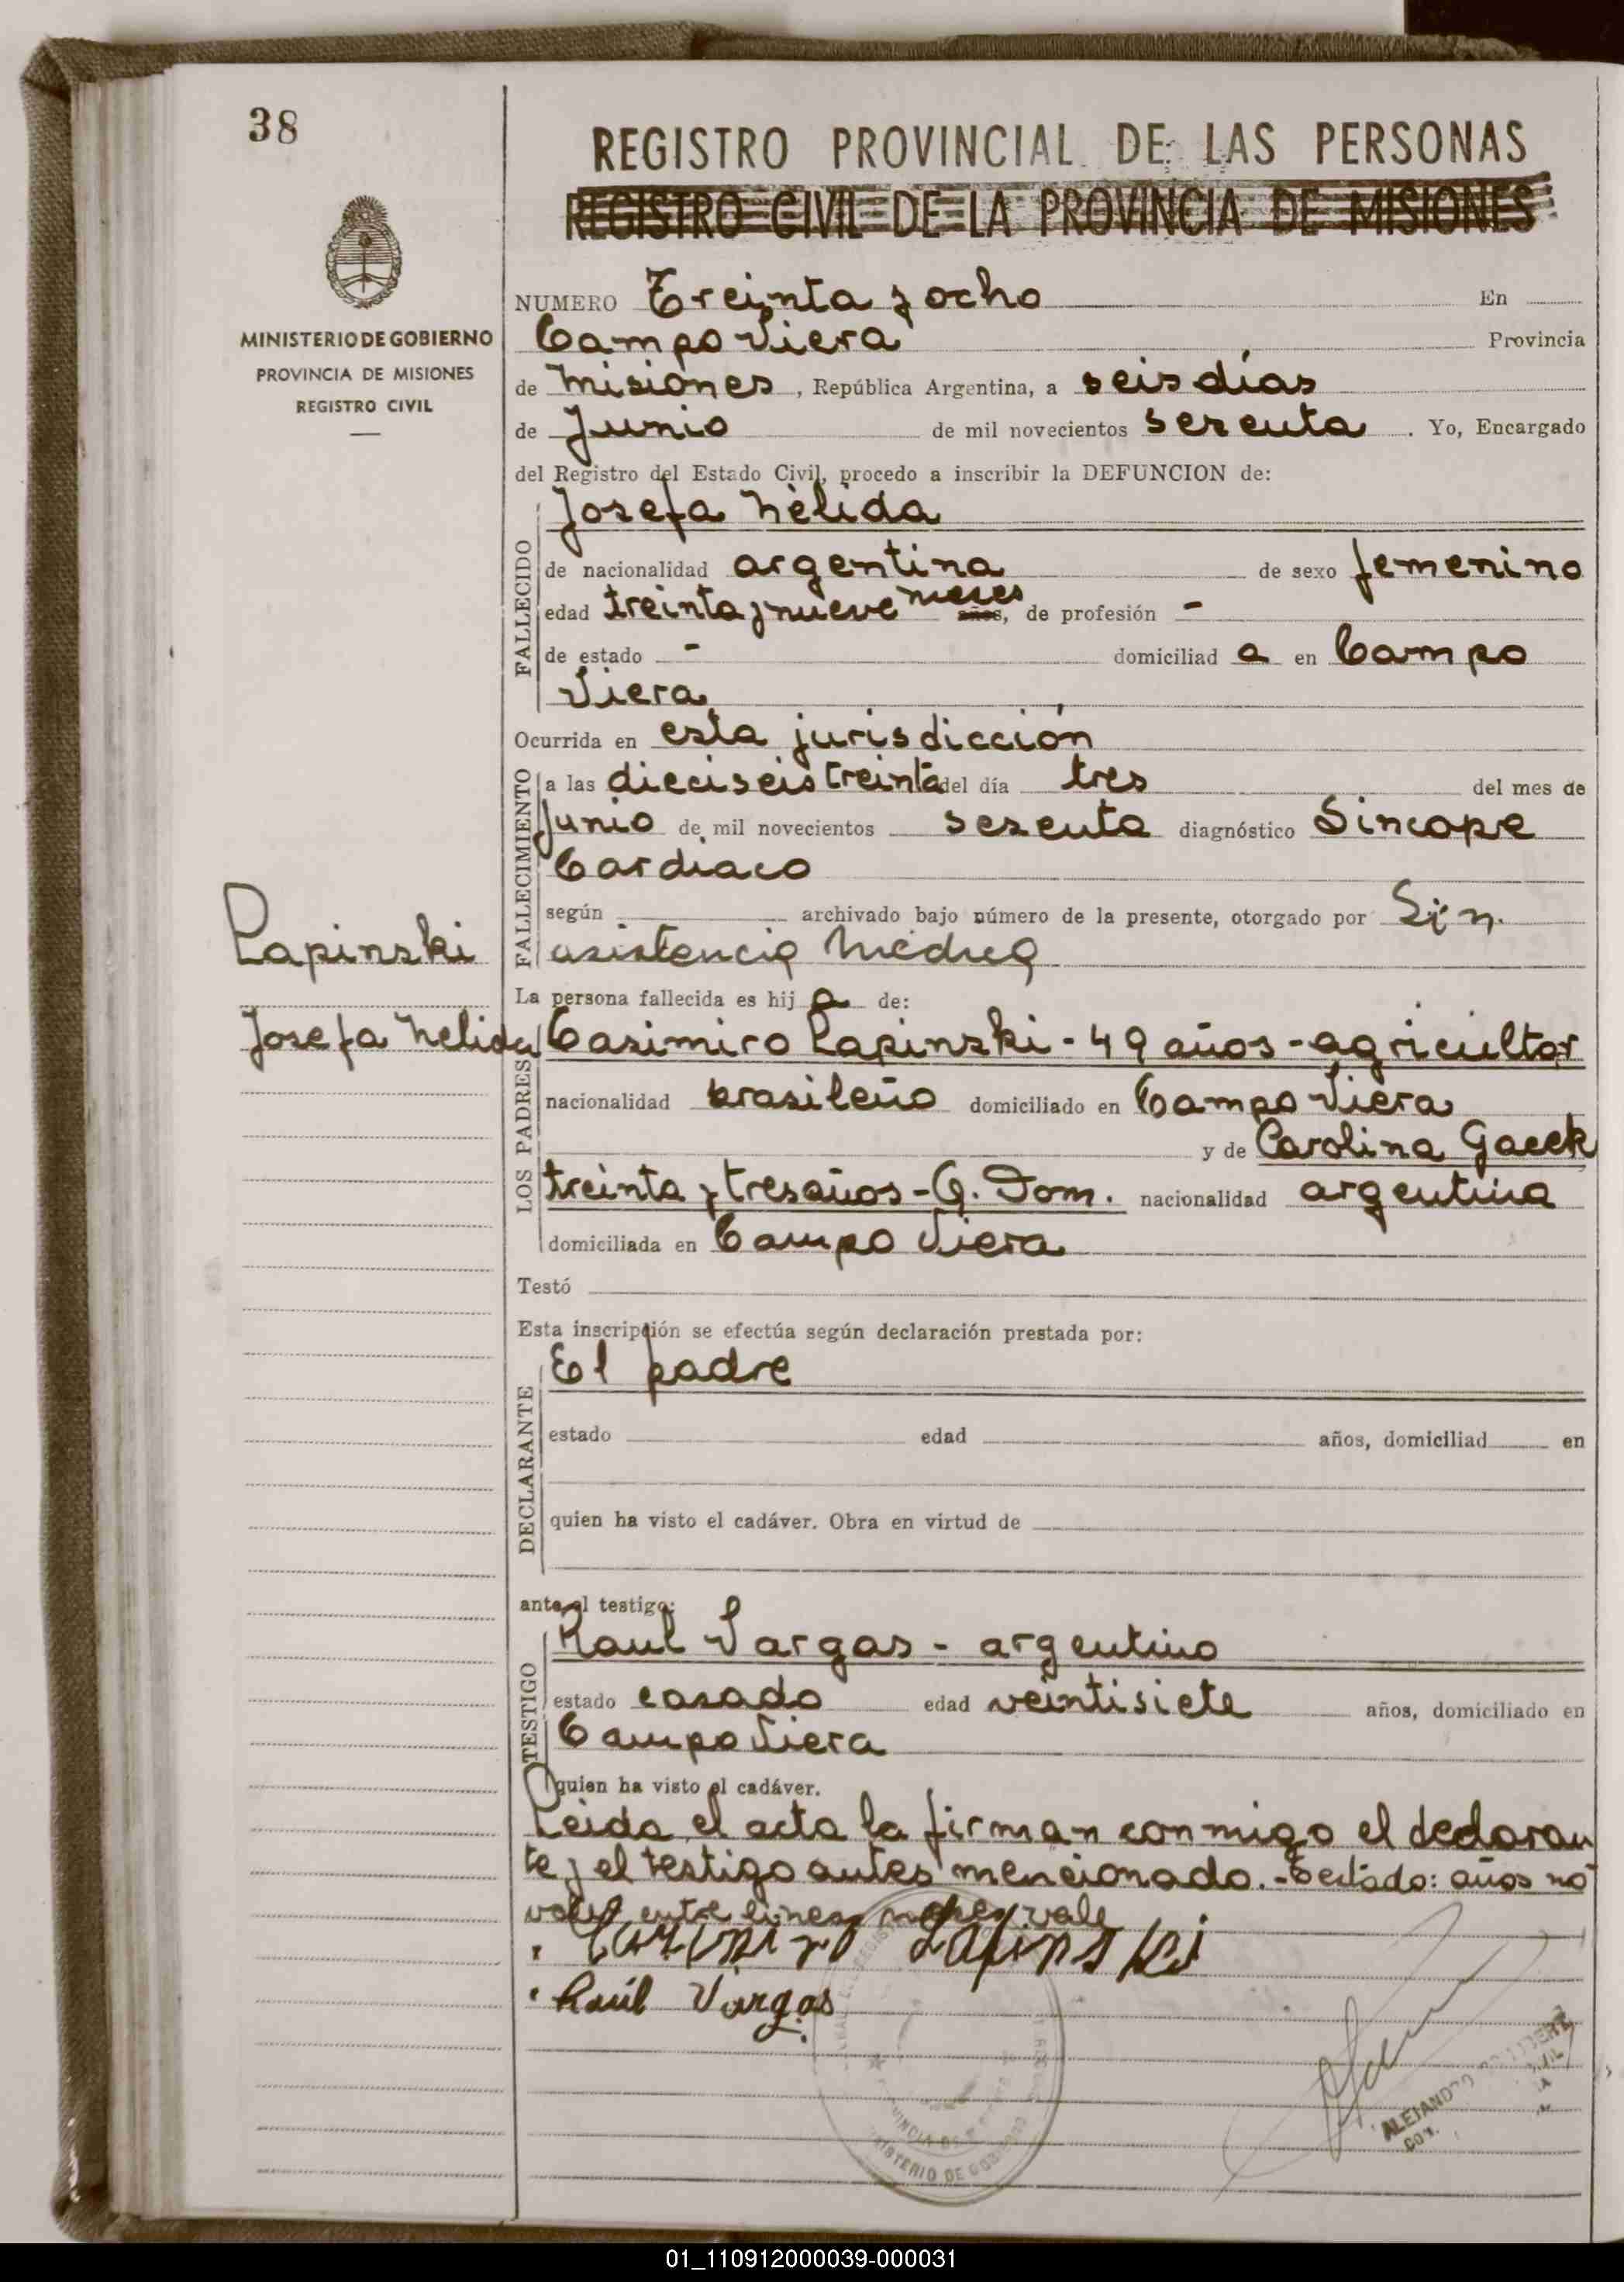 38
REGISTRO PROVINCIAL DE LAS PERSONAS
REGISTRO CIVIL DE LA PROVINCIA DE MISIONES
MINISTERIO DE GOBIERNO
PROVINCIA DE MISIONES
REGISTRO CIVIL
NUMERO Treinta y ocho En
Campo Viera Provincia
de Misiones, República Argentina, a seis días
de Junio de mil novecientos sesenta. Yo, Encargado
del Registro del Estado Civil, procedo a inscribir la DEFUNCION de:
Josefa Nélida
FALLECIDO
de nacionalidad argentina de sexo femenino
edad treinta y nueve meses años, de profesión -
de estado - domiciliad a en Campo
Viera
Ocurrida en esta jurisdicción
FALLECIMIENTO
a las dieciseis treinta del día tres del mes de
Junio de mil novecientos sesenta diagnóstico Sincope
Cardiaco
según archivado bajo número de la presente, otorgado por Sin
asistencia Médica
Lapinski
Josefa Nelida
La persona fallecida es hij a de:
LOS PADRES
Casimiro Lapinski - 49 años - agricultor
nacionalidad brasileño domiciliado en Campo Viera
y de Carolina Gacek
treinta y tres años - Q. Dom. nacionalidad argentina
domiciliada en Campo Viera
Testó
Esta inscripción se efectúa según declaración prestada por:
DECLARANTE
El padre
estado edad años, domiciliad en
quien ha visto el cadáver. Obra en virtud de
ante el testigo:
TESTIGO
Raul Vargas - argentino
estado casado edad veintisiete años, domiciliado en
Campo Viera
quien ha visto el cadáver.
Leida el acta la firman conmigo el declaran
te y el testigo antes mencionado. - Testado: años no
vale, entre lineas meses vale
Casimiro Lapinski
Raúl Vargas
MINISTERIO DE GOBIERNO
ALEJANDRO
01_110912000039-000031